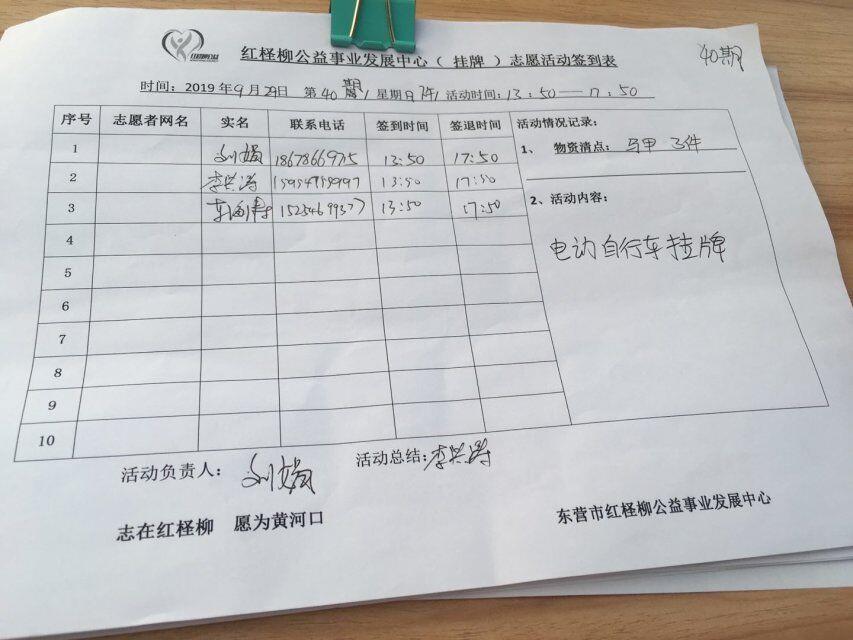 红柽柳公益事业发展中心（ 挂牌 ）志愿活动签到表
40期
时间：2019年9月29日 第40期 星期日 活动时间：13:50—17:50
序号 志愿者网名 实名 联系电话 签到时间 签退时间 活动情况记录：
1 刘娟 18678669715 13:50 17:50
1、 物资清点：马甲 3件
2 李兴涛 13:50 17:50
3 13:50 17:50
2、活动内容：
电动自行车挂牌
4
5
6
7
8
9
10
活动负责人：刘娟 活动总结：李兴涛
志在红柽柳 愿为黄河口
东营市红柽柳公益事业发展中心